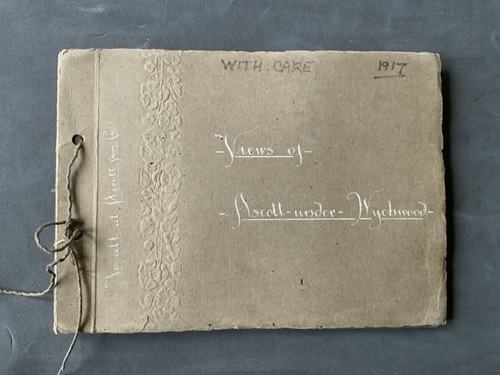 WITH CARE
1917
- Views of -
- Ascott - under - Wychwood -
To all at Ascott from